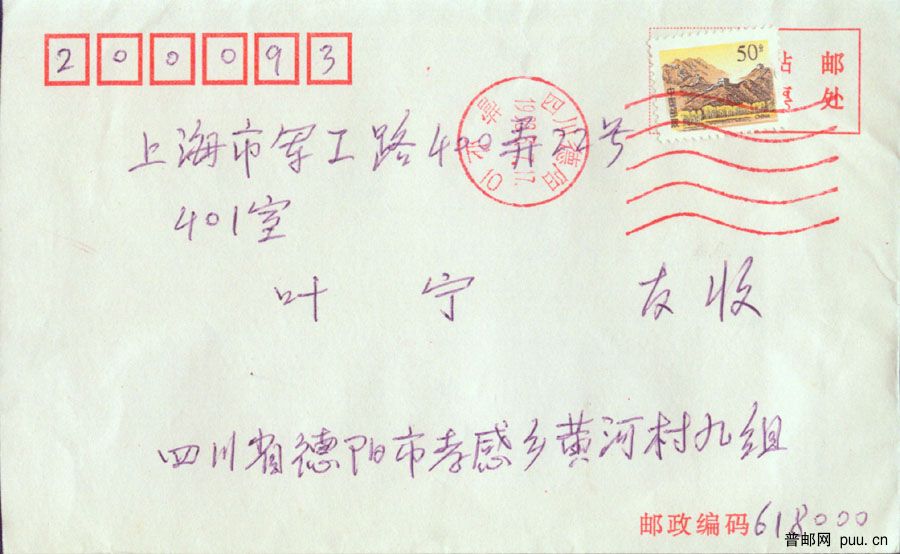 200093
50分
中国邮政
CHINA
贴 邮
票 处
四川德阳
上海市军工路400弄22号
401室
叶 宁 友收
四川省德阳市孝感乡黄河村九组
邮政编码618000
普邮网 puu.cn